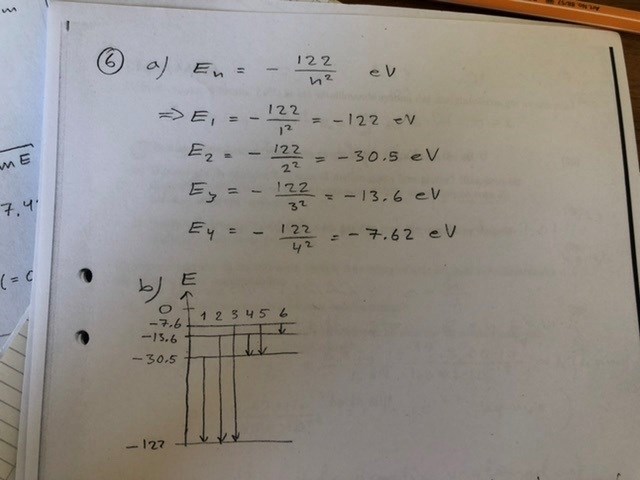 m
6 a) En = - 122/n² eV
=> E1 = - 122/1² = -122 eV
E2 = - 122/2² = -30.5 eV
E3 = - 122/3² = -13.6 eV
E4 = - 122/4² = -7.62 eV
mE
7.4
(= 0
b) E
0 1 2 3 4 5 6
-7.6
-13.6
-30.5
-122